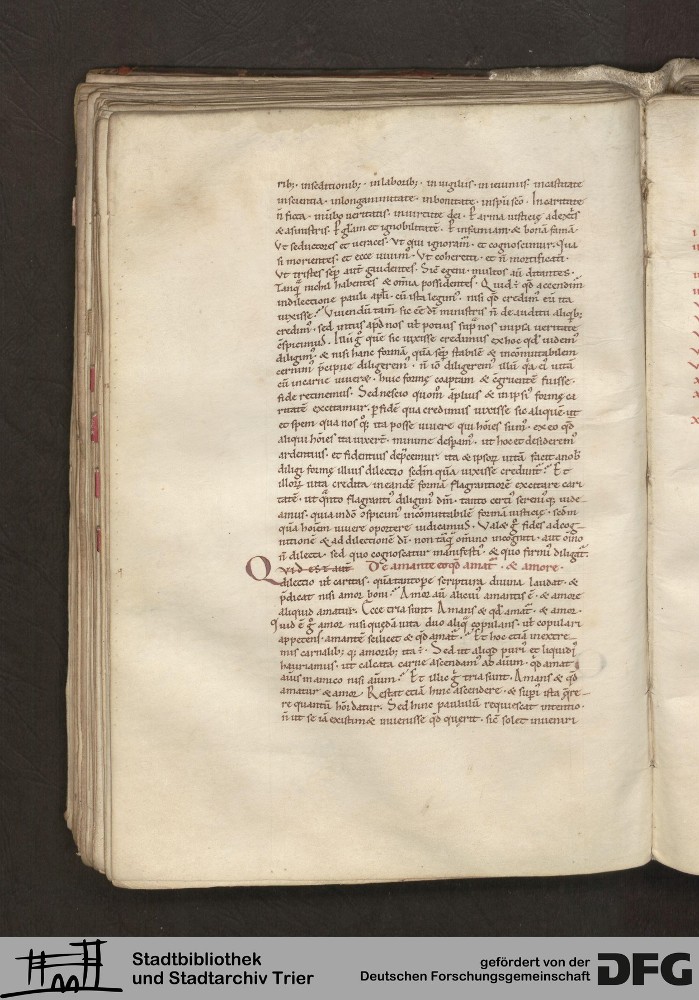 rib; inseditionib; inlaborib; in uigiliis· in ieiuniis· incastitate
inscientia· inlonganimitate· inbonitate· inspu sco· Incaritate
n ficta· inuerbo ueritatis· inuirtute dei· P arma iusticie adextris
& asinistris· P gliam et ignobilitate· P infamiam & bona fama·
Ut seductores et ueraces· ut qui ignoram· et cognoscimur· Qua
si morientes· et ecce uiuim· Ut coherciti· et n mortificati·
Ut tristes sep aut gaudentes· Sic egeni· multos au ditantes·
Tanq nichil habentes & omia possidentes· Quid e qd accendim
indileccione pauli apli· cu ista legim· nisi qd credim eu ita
uixisse? Uiuendu tam sic ee di ministris n de auditu aliqb;
credim· sed intus apd nos ut potius sup nos inipsa ueritate
cspicimus. Illu g que sic uixisse credimus ex hoc qd uidem
diligim· & nisi hanc forma qua sep stabile & incomutabilem
cernim pcipue diligerem· n io diligerem illu qa ei uita
cu incarne uiueret· huic forme coaptata & cgruente fuisse·
fide retinemus. Sed nescio quom aplius & in ipsi forme ca
ritate excitamur· p fide qua credimus uixisse sic alique· ut
et spem qua nos q; ita posse uiuere qui hoies sum· ex eo qd
aliqui hoies ita uixert· minime despam· ut hoc et desiderem
ardentius· et fidentius depcemur· ita & ipsor uita facit anob
diligi forme illius dileccio scdm qua uixisse credunt· Et
illor uita credita in eande forma flagrantiore excitare cari
tate· ut qnto flagranti diligim dm· tanto certi sereniq; uide
amus· quia indo cspicim incomutabile forma iusticie· scdm
qua hoiem uiuere oportere iudicamus. Valet g fides adcog
nitione & ad dileccione di· non taq omino incogniti· aut omo
n dilecti· sed quo cognoscatur manifesti· & quo firmi diligat·
Quid est aut De amante et qd amat· & amore·
dileccio ut caritas· quatantope scriptura diuina laudat· &
pdicat nisi amor boni? Amor au alicui amantis e· & amore
aliquid amatur. Ecce tria sunt· Amans & qd amat· & amor·
Quid e g amor nisi queda uita duo aliq copulans· ut copulari
appetens· amante scilicet & qd amat? Et hoc etia in extre
mis carnalib; q; amorib; ita e· Sed ut aliqd puri et liquidi
hauriamus· ut calcata carne ascendam ad aium· qd amat
aius in amico nisi aium? Et illic g tria sunt· Amans & qd
amatur & amor· Restat etia hinc ascendere· & supi ista qre
re quantu hoi datur. Sed hinc paululu requiescat intentio·
n ut se ia existimet inuenisse qd querit· sic solet inueniri
Stadtbibliothek
und Stadtarchiv Trier
gefördert von der
Deutschen Forschungsgemeinschaft
DFG